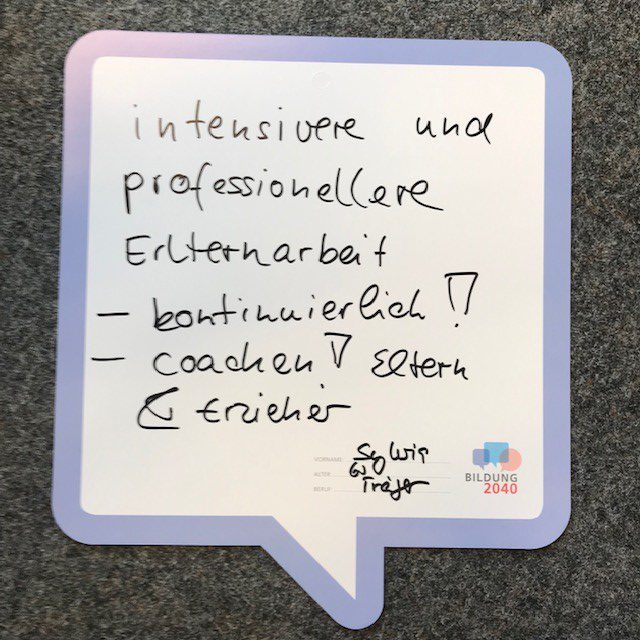 intensivere und
professionellere
Erlternarbeit
- kontinuierlich!!
- coachen! Eltern
& Erzieher
VORNAME Sylvia
ALTER
BERUF Träger
BILDUNG
2040